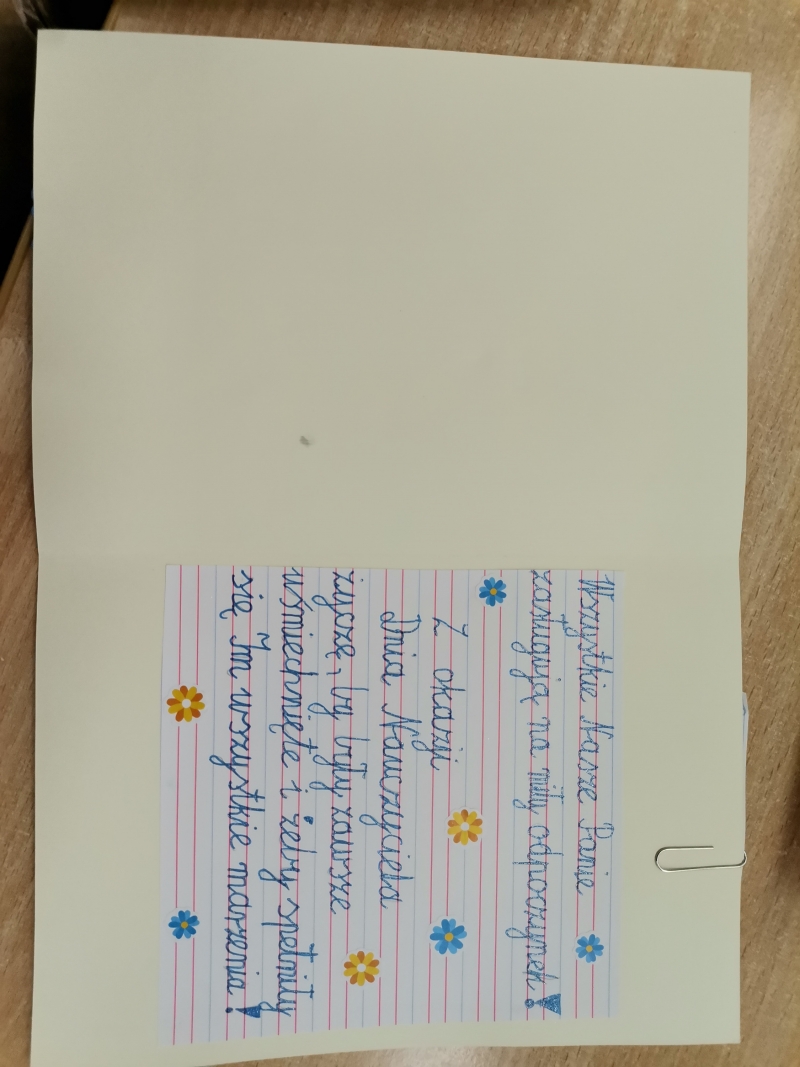 Wszystkie Nasze Panie
zasługują na miły odpoczynek!
Z okazji
Dnia Nauczyciela
życzę, by były zawsze
uśmiechnięte i żeby spełniły
się Im wszystkie marzenia!